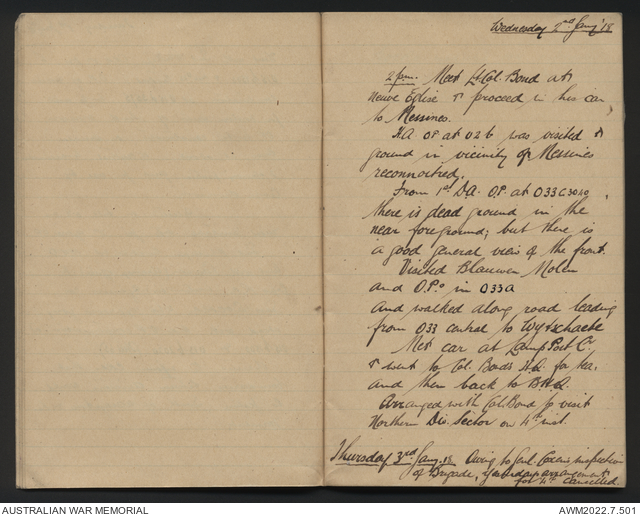 Wednesday 2nd Jany '18
2 p.m. Meet Lt Col. Bond at
Neuve Eglise & proceed in his car
to Messines.
H.A. OP at O2b was visited &
ground in vicinity of Messines
reconnoitred.
From 1st D.A. O.P. at O33C3040,
there is dead ground in the
near foreground; but there is
a good general view of the front.
Visited Blauwen Molen
and O.Ps in O33a
and walked along road leading
from O33 central to Wytschaete
Met car at Lamp Post Cr.
& went to Col. Bond's H.Q. for tea.
and then back to B.H.Q.
Arranged with Col. Bond to visit
Northern Div. Sector on 4th inst.
Thursday 3rd Jany. 18. Owing to Genl. Coxens inspection
of Brigade, yesterdays arrangements
for 4th cancelled.
AUSTRALIAN WAR MEMORIAL
AWM2022.7.501